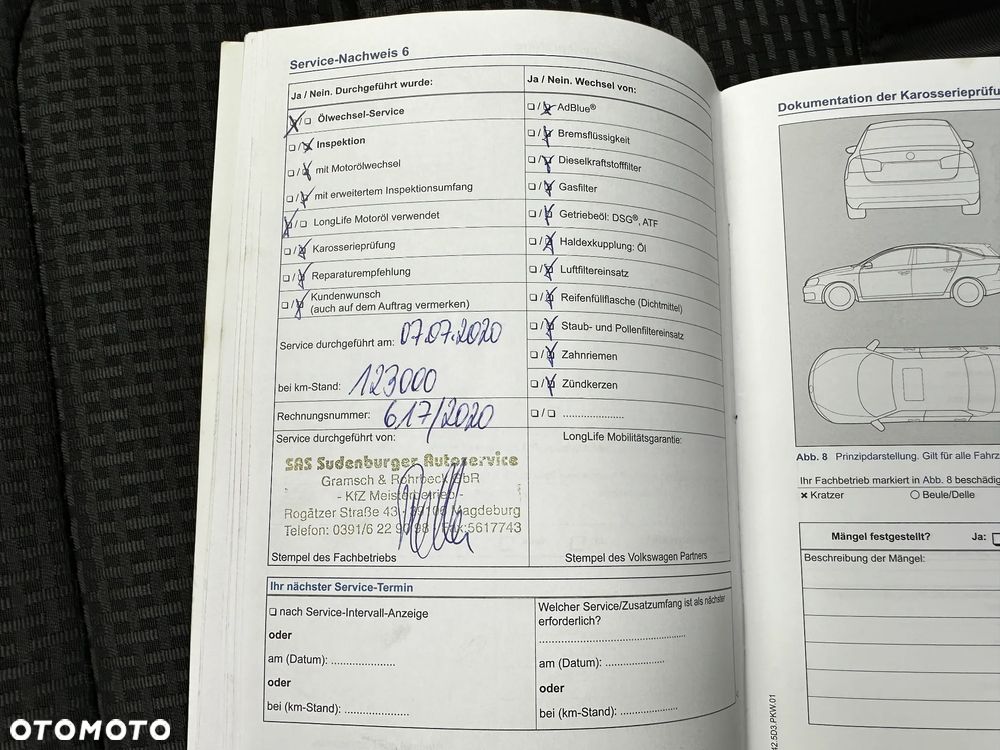 Service-Nachweis 6
Ja / Nein. Durchgeführt wurde:
❏/❏ Ölwechsel-Service
❏/❏ Inspektion
❏/❏ mit Motorölwechsel
❏/❏ mit erweitertem Inspektionsumfang
❏/❏ LongLife Motoröl verwendet
❏/❏ Karosserieprüfung
❏/❏ Reparaturempfehlung
❏/❏ Kundenwunsch
(auch auf dem Auftrag vermerken)
Service durchgeführt am: 07.07.2020
bei km-Stand: 123000
Rechnungsnummer: 617/2020
Service durchgeführt von:
SAS Sudenburger Autoservice
Gramsch & Rohrbeck GbR
- KfZ Meisterbetrieb -
Rogätzer Straße 43 - 39106 Magdeburg
Telefon: 0391/6 22 90 98 Fax:5617743
Stempel des Fachbetriebs
Ja / Nein. Wechsel von:
❏/❏ AdBlue®
❏/❏ Bremsflüssigkeit
❏/❏ Dieselkraftstofffilter
❏/❏ Gasfilter
❏/❏ Getriebeöl: DSG®, ATF
❏/❏ Haldexkupplung: Öl
❏/❏ Luftfiltereinsatz
❏/❏ Reifenfüllflasche (Dichtmittel)
❏/❏ Staub- und Pollenfiltereinsatz
❏/❏ Zahnriemen
❏/❏ Zündkerzen
❏/❏ .....................
LongLife Mobilitätsgarantie:
Stempel des Volkswagen Partners
Ihr nächster Service-Termin
❏ nach Service-Intervall-Anzeige
oder
am (Datum): .....................
oder
bei (km-Stand): .....................
Welcher Service/Zusatzumfang ist als nächster
erforderlich?
.................................................
am (Datum): ....................
oder
bei (km-Stand): ....................
Dokumentation der Karosserieprüfu
Abb. 8 Prinzipdarstellung. Gilt für alle Fahrz
Ihr Fachbetrieb markiert in Abb. 8 beschädig
× Kratzer ○ Beule/Delle
Mängel festgestellt? Ja: ❏
Beschreibung der Mängel:
42.5D3.PKW.01
OTOMOTO